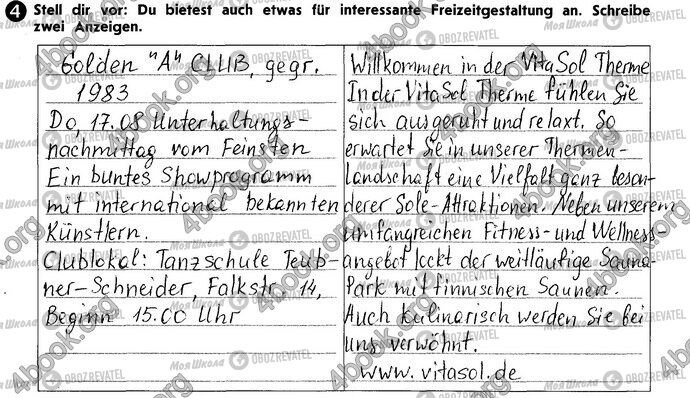 4 Stell dir vor: Du bietest auch etwas für interessante Freizeitgestaltung an. Schreibe
zwei Anzeigen.
Golden "A" CLUB, gegr.
1983
Do, 17.08 Unterhaltungs-
nachmittag vom Feinsten
Ein buntes Showprogramm
mit international bekannten
Künstlern.
Clublokal: Tanzschule Teub-
ner-Schneider, Falkstr. 14,
Beginn 15.00 Uhr
Willkommen in der VitaSol Therme
In der VitaSol Therme fühlen Sie
sich ausgeruht und relaxt. So
erwartet Sie in unserer Thermen-
landschaft eine Vielfalt ganz beson-
derer Sole-Attraktionen. Neben unserem
umfangreichen Fitness- und Wellness-
angebot lockt der weitläufige Sauna-
Park mit finnischen Saunen.
Auch kulinarisch werden Sie bei
uns verwöhnt.
www.vitasol.de